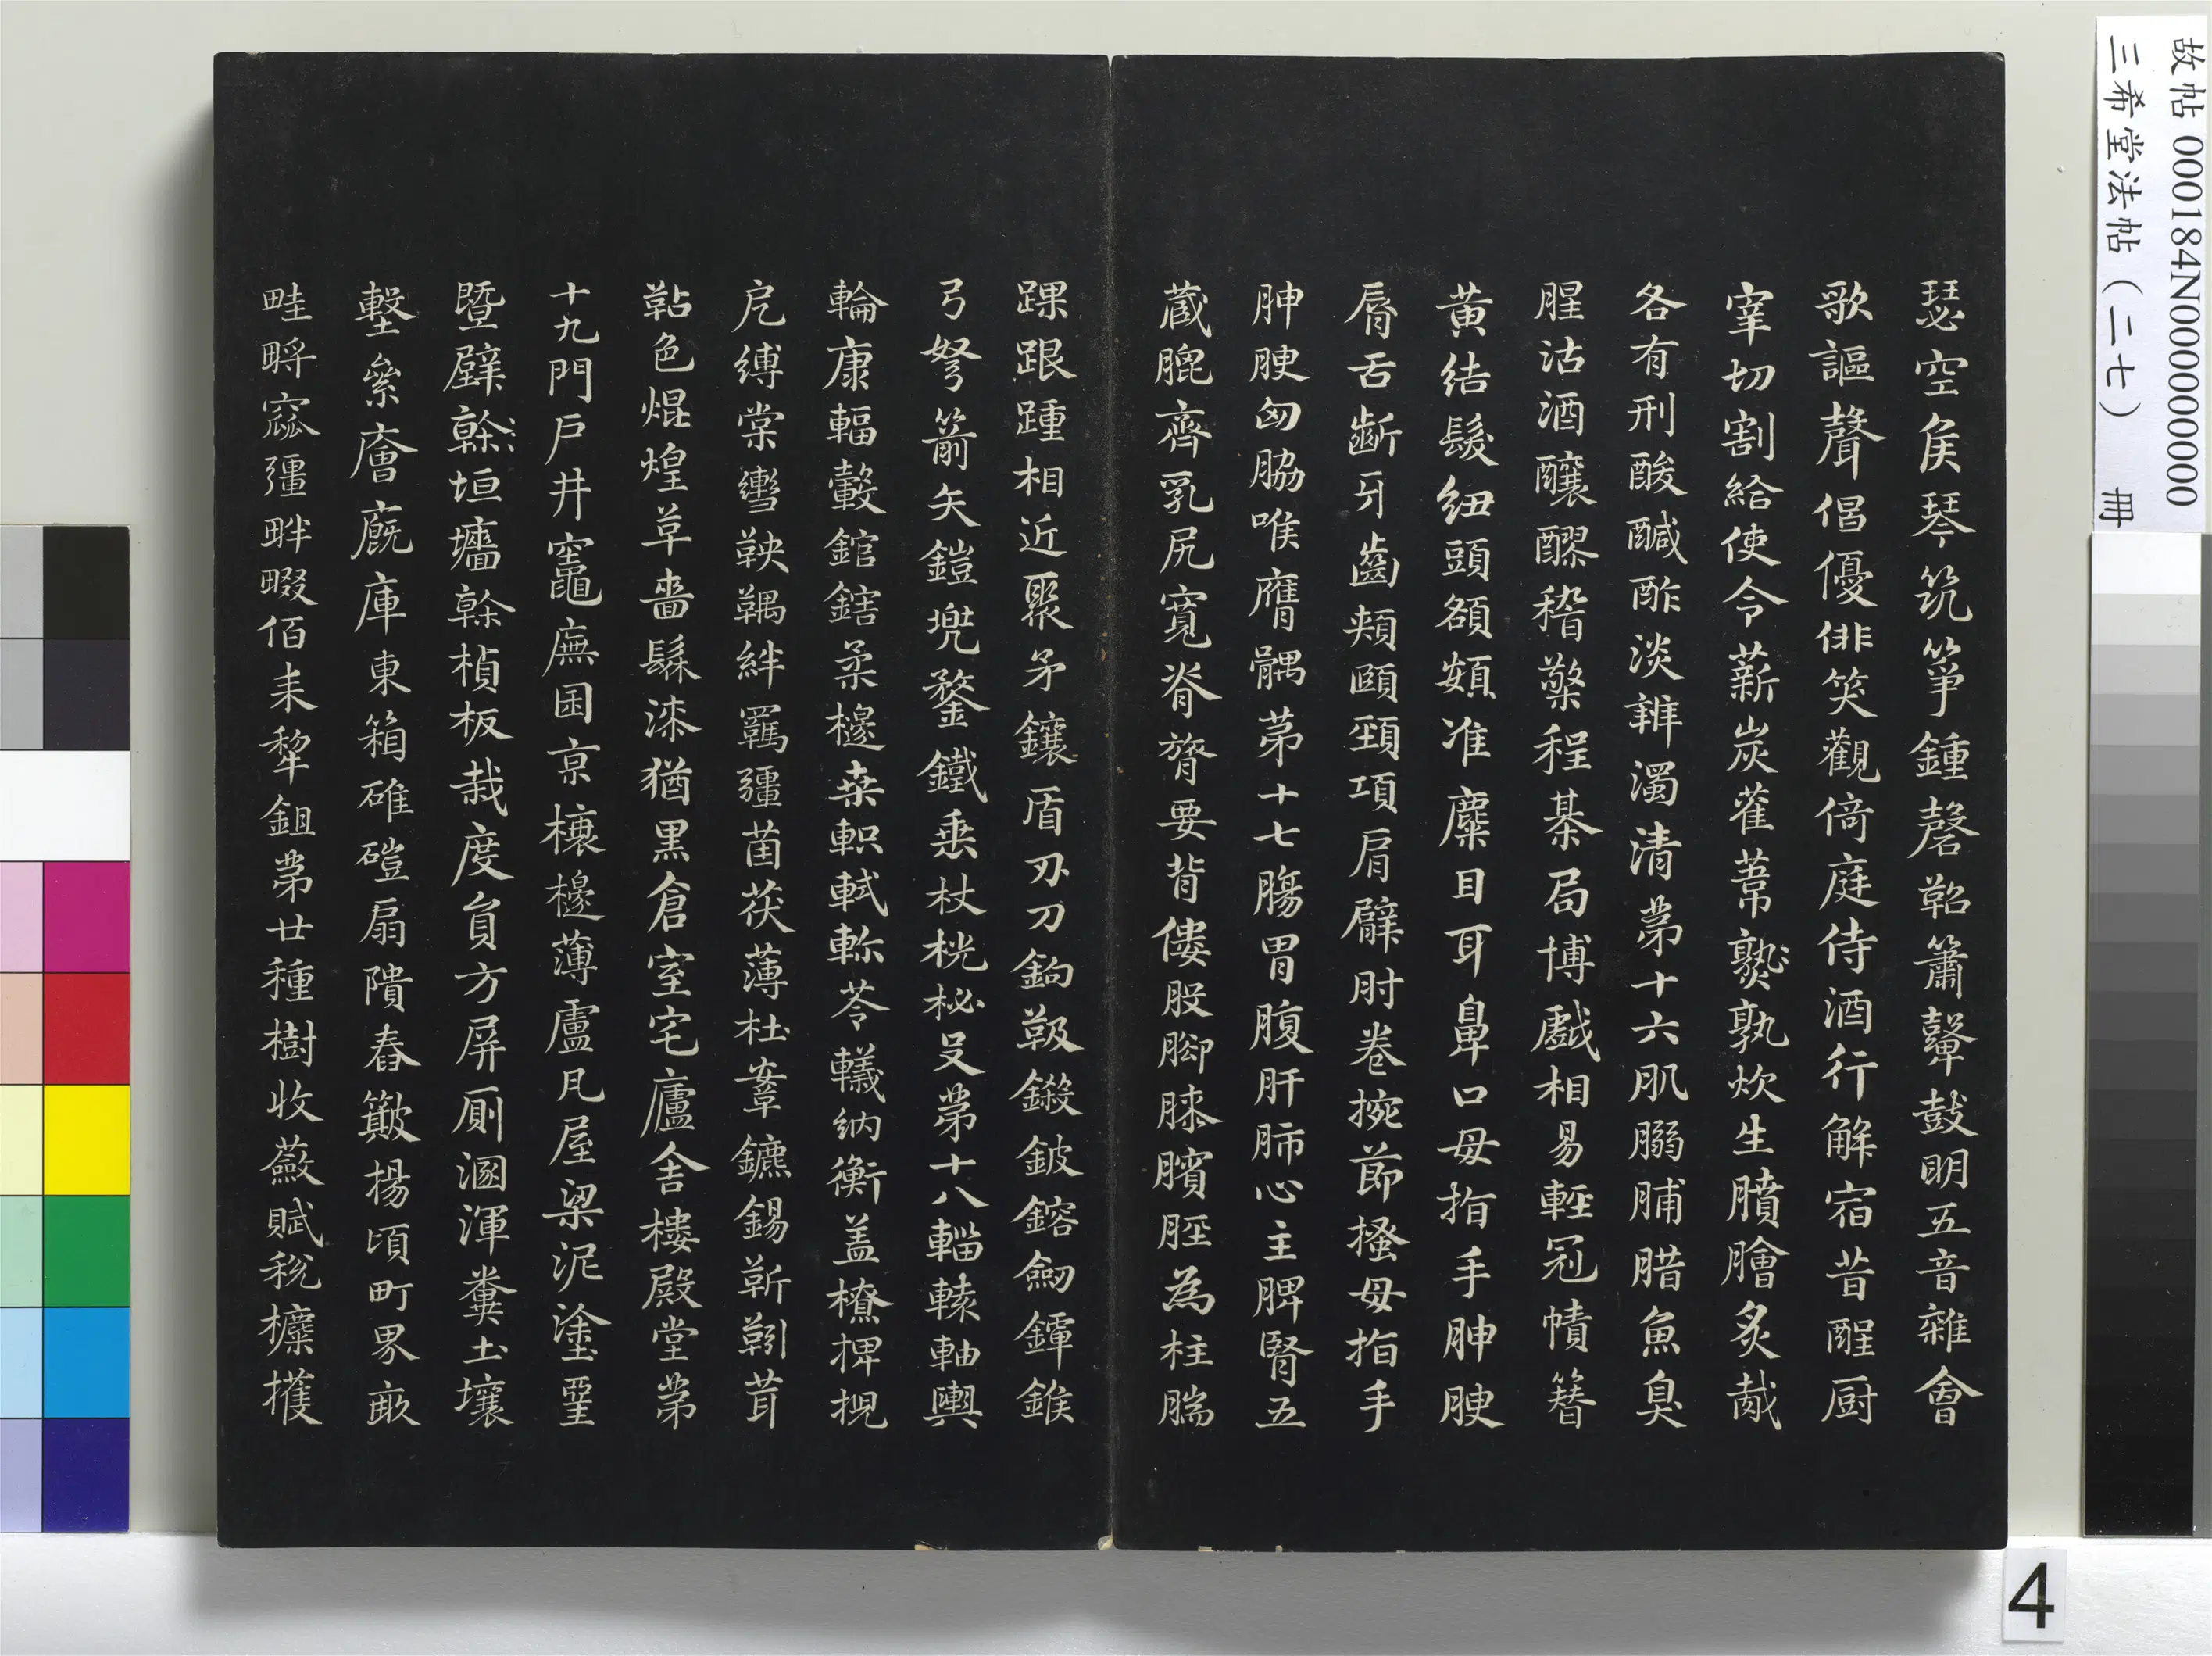 瑟空侯琴筑箏鍾磬鞀簫鼙鼓明五音雜會
歌謳聲倡優俳笑觀倚庭侍酒行觧宿昔酲厨
宰切割給使令薪炭雚葦熟孰炊生膹膾炙胾
各有刑酸醎酢淡辨濁清苐十六肌𦜕脯腊魚臭
腥沽酒釀醪稽檠程棊局博戲相易輕冠幘簪
黄結髮紐頭頟頞准麋目耳鼻口毋指手胂腴
脣舌齗牙齒頰頤頸項肩臂肘卷捥節搔母指手
胂腴匈脇喉膺髃苐十七腸胃腹肝肺心主脾腎五
藏膍齊乳尻寬脊膂要背僂股腳膝臏脛為柱腨
踝跟踵相近聚矛鑲盾刃刀鉤鈒鍛鈹鎔劒鐔鍭
弓弩箭矢鎧兠鍪鐵垂杖桄柲殳苐十八輜轅軸輿
輪康輻轂錧鎋柔櫋桒軹軾軫苓轙納衡盖橑捭棿
戹縛棠轡鞅𩋾絆羈彊茵茯薄杜鞌鑣鍚靳靷茸
鞊色焜煌革嗇髹漆猶黒倉室宅廬舍樓殿堂苐
十九門戸井竈廡囷京榱櫋薄盧凡屋梁泥塗堊
塈壁榦垣墻榦楨板栽度負方屏厠溷渾糞土壤
墼絫廥廐庫東箱碓磑扇隤舂簸揚頃町界畝
畦畤窊彊畔畷佰耒犂鉏苐廿種樹收歛賦稅𣟄擭
故帖 000184N000000000
三希堂法帖（二七） 冊
4